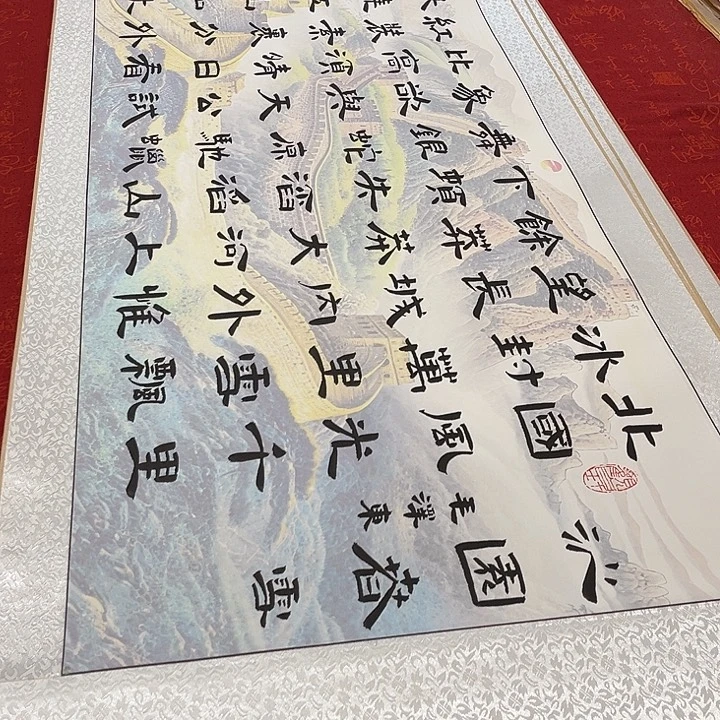 沁園春雪
毛澤東
北國風光千里
冰封萬里雪飄
望長城内外惟
餘莽莽大河上
下頓失滔滔山
舞銀蛇原馳蠟
象欲與天公試
比高須晴日看
紅裝素裹分外